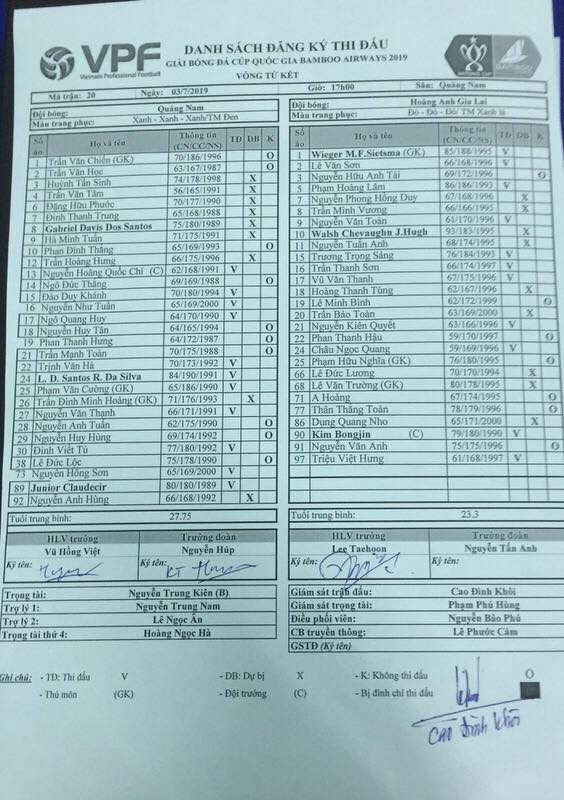 VPF
Vietnam Professional Football
DANH SÁCH ĐĂNG KÝ THI ĐẤU
GIẢI BÓNG ĐÁ CÚP QUỐC GIA BAMBOO AIRWAYS 2019
VÒNG TỨ KẾT
NATIONAL CUP
BAMBOO
Mã trận: 20 Ngày: 03/7/2019 Giờ: 17h00 Sân: Quảng Nam
Đội bóng: Quảng Nam
Màu trang phục: Xanh - Xanh - Xanh/TM Đen
Số áo Họ và tên Thông tin (CN/CC/NS) TĐ DB K
1 Trần Văn Chiến (GK) 70/186/1996 O
2 Trần Văn Học 63/167/1987 O
3 Huỳnh Tấn Sinh 74/178/1998 X
4 Trần Văn Tâm 56/165/1991 X
6 Đặng Hữu Phước 70/177/1990 X
7 Đinh Thanh Trung 65/168/1988 X
8 Gabriel Davis Dos Santos 75/180/1989 X
9 Hà Minh Tuấn 71/175/1991 X
10 Phan Đình Thắng 65/169/1993 O
12 Trần Hoàng Hưng 66/175/1996 X
13 Nguyễn Hoàng Quốc Chí (C) 62/168/1991 V
14 Ngô Đức Thắng 69/169/1988 O
15 Đào Duy Khánh 70/180/1994 V
16 Nguyễn Như Tuấn 65/169/2000 V
17 Ngô Quang Huy 64/170/1990 V
18 Nguyễn Huy Tân 64/165/1994 O
19 Phan Thanh Hưng 64/172/1987 O
21 Trần Mạnh Toàn 70/175/1988 O
22 Trịnh Văn Hà 70/173/1992 V
24 L. D. Santos R. Da Silva 84/190/1991 V
25 Phạm Văn Cường (GK) 65/186/1990 V
26 Trần Đình Minh Hoàng (GK) 71/176/1993 X
27 Nguyễn Văn Thạnh 66/171/1991 V
28 Nguyễn Anh Tuấn 62/175/1990 O
29 Nguyễn Huy Hùng 69/174/1992 O
30 Đinh Viết Tú 77/180/1992 V
38 Lê Đức Lộc 75/178/1990 O
73 Nguyễn Hồng Sơn 65/169/2000 V
89 Junior Claudecir 80/180/1989 V
92 Nguyễn Anh Hùng 66/168/1992 X
Tuổi trung bình: 27.75
HLV trưởng Trưởng đoàn
Vũ Hồng Việt Nguyễn Húp
Ký tên: Ký tên:
Đội bóng: Hoàng Anh Gia Lai
Màu trang phục: Đỏ - Đỏ - Đỏ/ TM Xanh lá
Số áo Họ và tên Thông tin (CN/CC/NS) TĐ DB K
1 Wieger M.F.Sietsma (GK) 85/188/1995 V
2 Lê Văn Sơn 66/168/1996 V
3 Nguyễn Hữu Anh Tài 69/172/1996 O
5 Phạm Hoàng Lâm 86/186/1993 V
7 Nguyễn Phong Hồng Duy 67/168/1996 X
8 Trần Minh Vương 66/166/1995 X
9 Nguyễn Văn Toàn 61/170/1996 V
10 Walsh Chevaughn J.Hugh 93/183/1995 X
11 Nguyễn Tuấn Anh 68/174/1995 X
15 Trương Trọng Sáng 76/184/1993 V
16 Trần Thanh Sơn 66/174/1997 V
17 Vũ Văn Thanh 67/175/1996 V
18 Hoàng Thanh Tùng 62/167/1996 X
19 Lê Minh Bình 62/172/1999 O
20 Trần Bảo Toàn 63/169/2000 X
21 Nguyễn Kiên Quyết 63/166/1996 V
22 Phan Thanh Hậu 59/170/1997 O
24 Châu Ngọc Quang 59/169/1996 V
25 Phạm Hữu Nghĩa (GK) 76/180/1995 O
66 Lê Đức Lương 70/170/1994 X
68 Lê Văn Trường (GK) 80/178/1995 X
71 A Hoàng 67/174/1995 O
77 Thân Thắng Toàn 78/179/1996 O
86 Dụng Quang Nho 65/171/2000 X
90 Kim Bongjin (C) 79/180/1990 V
91 Nguyễn Văn Anh 75/175/1996 O
97 Triệu Việt Hưng 61/168/1997 V
Tuổi trung bình: 23.3
HLV trưởng Trưởng đoàn
Lee Taehoon Nguyễn Tấn Anh
Ký tên: Ký tên:
Trọng tài: Nguyễn Trung Kiên (B)
Trợ lý 1: Nguyễn Trung Nam
Trợ lý 2: Lê Ngọc Ấn
Trọng tài thứ 4: Hoàng Ngọc Hà
Giám sát trận đấu: Cao Đình Khôi
Giám sát trọng tài: Phạm Phú Hùng
Điều phối viên: Nguyễn Bảo Phú
CB truyền thông: Lê Phước Cảm
GSTĐ (Ký tên)
Ghi chú: - TĐ: Thi đấu V - DB: Dự bị X - K: Không thi đấu O
- Thủ môn (GK) - Đội trưởng (C) - Bị đình chỉ thi đấu
Cao Đình Khôi